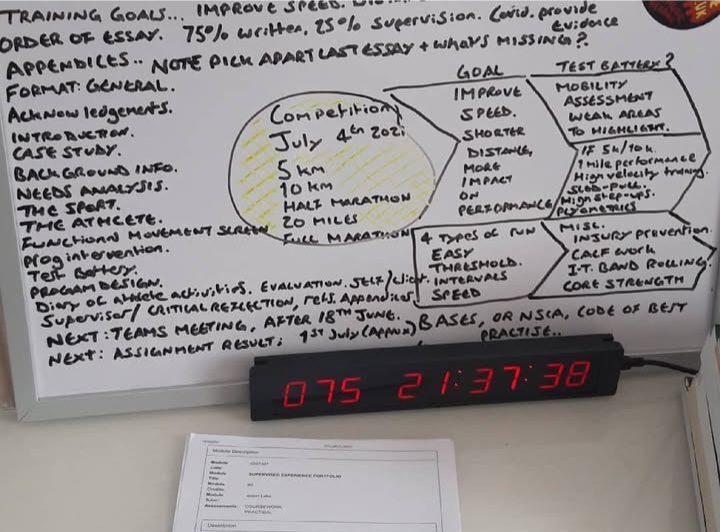 TRAINING GOALS... IMPROVE SPEED.
ORDER OF ESSAY. 75% written, 25% supervision. Covid. provide
Evidence
APPENDICES.. NOTE PICK APART LAST ESSAY + WHAT'S MISSING?
FORMAT: GENERAL.
Acknowledgements.
INTRODUCTION.
CASE STUDY.
BACKGROUND INFO.
NEEDS ANALYSIS.
THE SPORT.
THE ATHLETE.
FUNCTIONAL MOVEMENT SCREEN
prog intervention.
Test Battery.
PROGAM DESIGN.
Diary of athlete activities. EVALUATION. SELF/client.
Supervisor/ CRITICAL REFLECTION, refs. Appendices
NEXT: TEAMS MEETING, AFTER 18TH JUNE.
NEXT: ASSIGNMENT RESULT; 1ST July (Approx)
BASES, OR NSCA, CODE OF BEST
PRACTISE..
Competition
July 4th 2021
5 km
10 km
HALF MARATHON
20 MILES
FULL MARATHON
GOAL
IMPROVE
SPEED.
SHORTER
DISTANCE,
MORE
IMPACT
ON
PERFORMANCE
TEST BATTERY?
MOBILITY
ASSESSMENT
WEAK AREAS
TO HIGHLIGHT.
IF 5k/10k.
1 mile performance
High velocity training.
SLED-PULL.
High step-ups.
PLYOMETRICS
4 Types of RUN
EASY
THRESHOLD.
INTERVALS
SPEED
MISC.
INJURY PREVENTION.
CALF WORK
I.T. BAND ROLLING.
CORE STRENGTH
075 21:37:38
Module Description
Module
Module
Title
SUPERVISED EXPERIENCE PORTFOLIO
Module
Credits
Module
Tutor
Assessments:
COURSEWORK
PRACTICAL
Description
UK